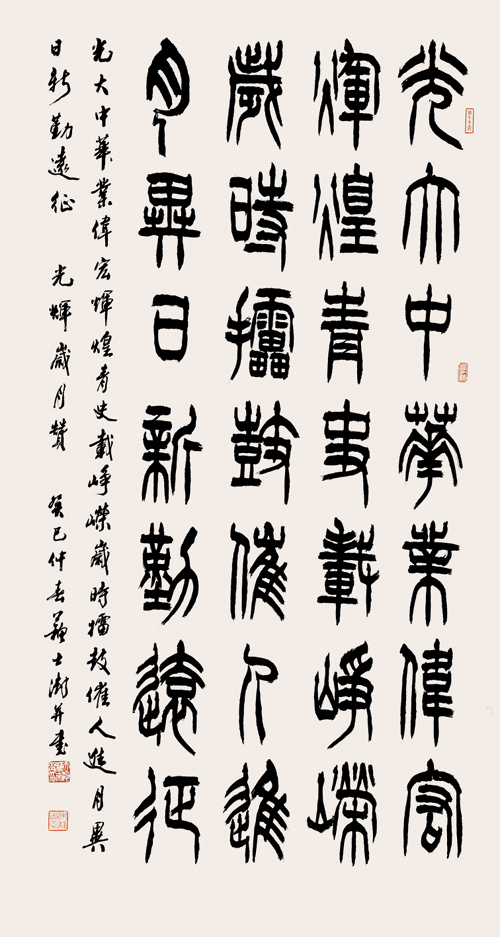 光大中華業偉宏
輝煌青史載崢嶸
歲時擂鼓催人進
月異日新勤遠征
光大中華業偉宏輝煌青史載崢嶸歲時擂鼓催人進月異
日新勤遠征 光輝歲月贊 癸巳仲春蘇士澍并書